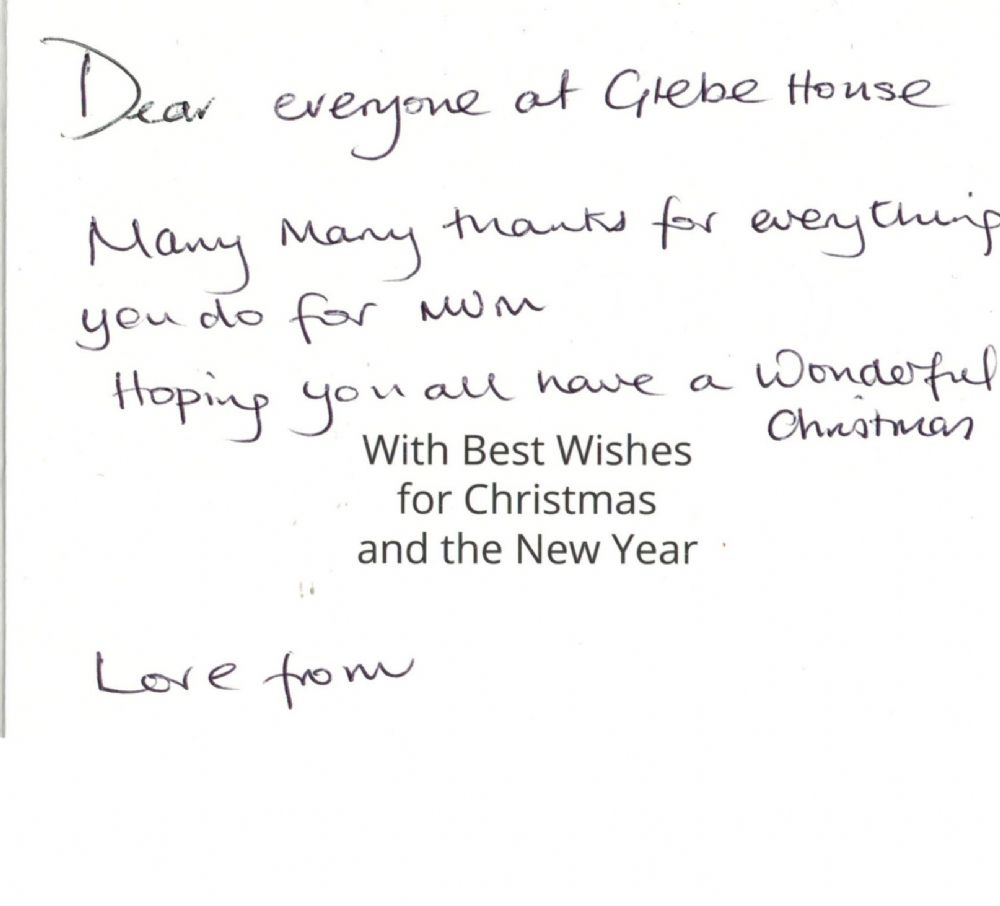 Dear everyone at Glebe House
Many Many thanks for everything
you do for mum
Hoping you all have a wonderful
Christmas
With Best Wishes
for Christmas
and the New Year
Love from